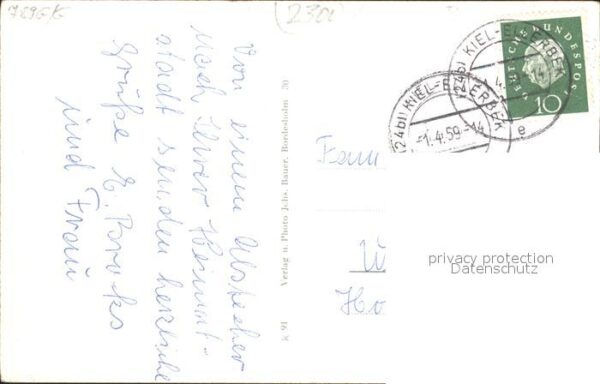 7695K
(2301
Von einem Abstecher
nach Ihrer Heimat-
stadt senden herzliche
Grüße E. Brocks
und Frau
k 91 Verlag u. Photo Johs. Bauer, Bordesholm 30
Fam
Ho
(24b) KIEL-ELLERBEK
-1.4.59.-14
e
(24b) KIEL-ELLERBEK
DEUTSCHE BUNDESPOST
10
privacy protection
Datenschutz